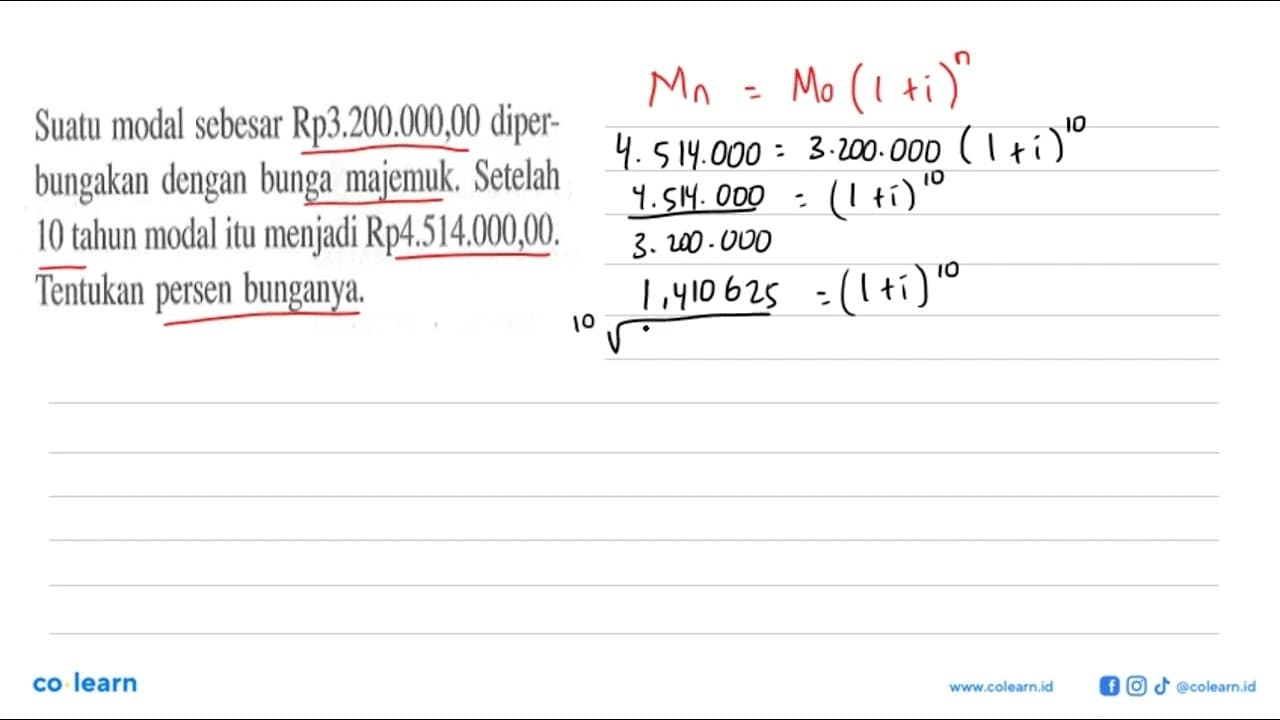 Suatu modal sebesar Rp3.200.000,00 diper-
bungakan dengan bunga majemuk. Setelah
10 tahun modal itu menjadi Rp4.514.000,00.
Tentukan persen bunganya.
Mn = Mo (1 + i)^n
4.514.000 = 3.200.000 (1 + i)^10
4.514.000 = (1 + i)^10
3.200.000
1,410625 = (1 + i)^10
10 √
co learn
www.colearn.id @colearn.id